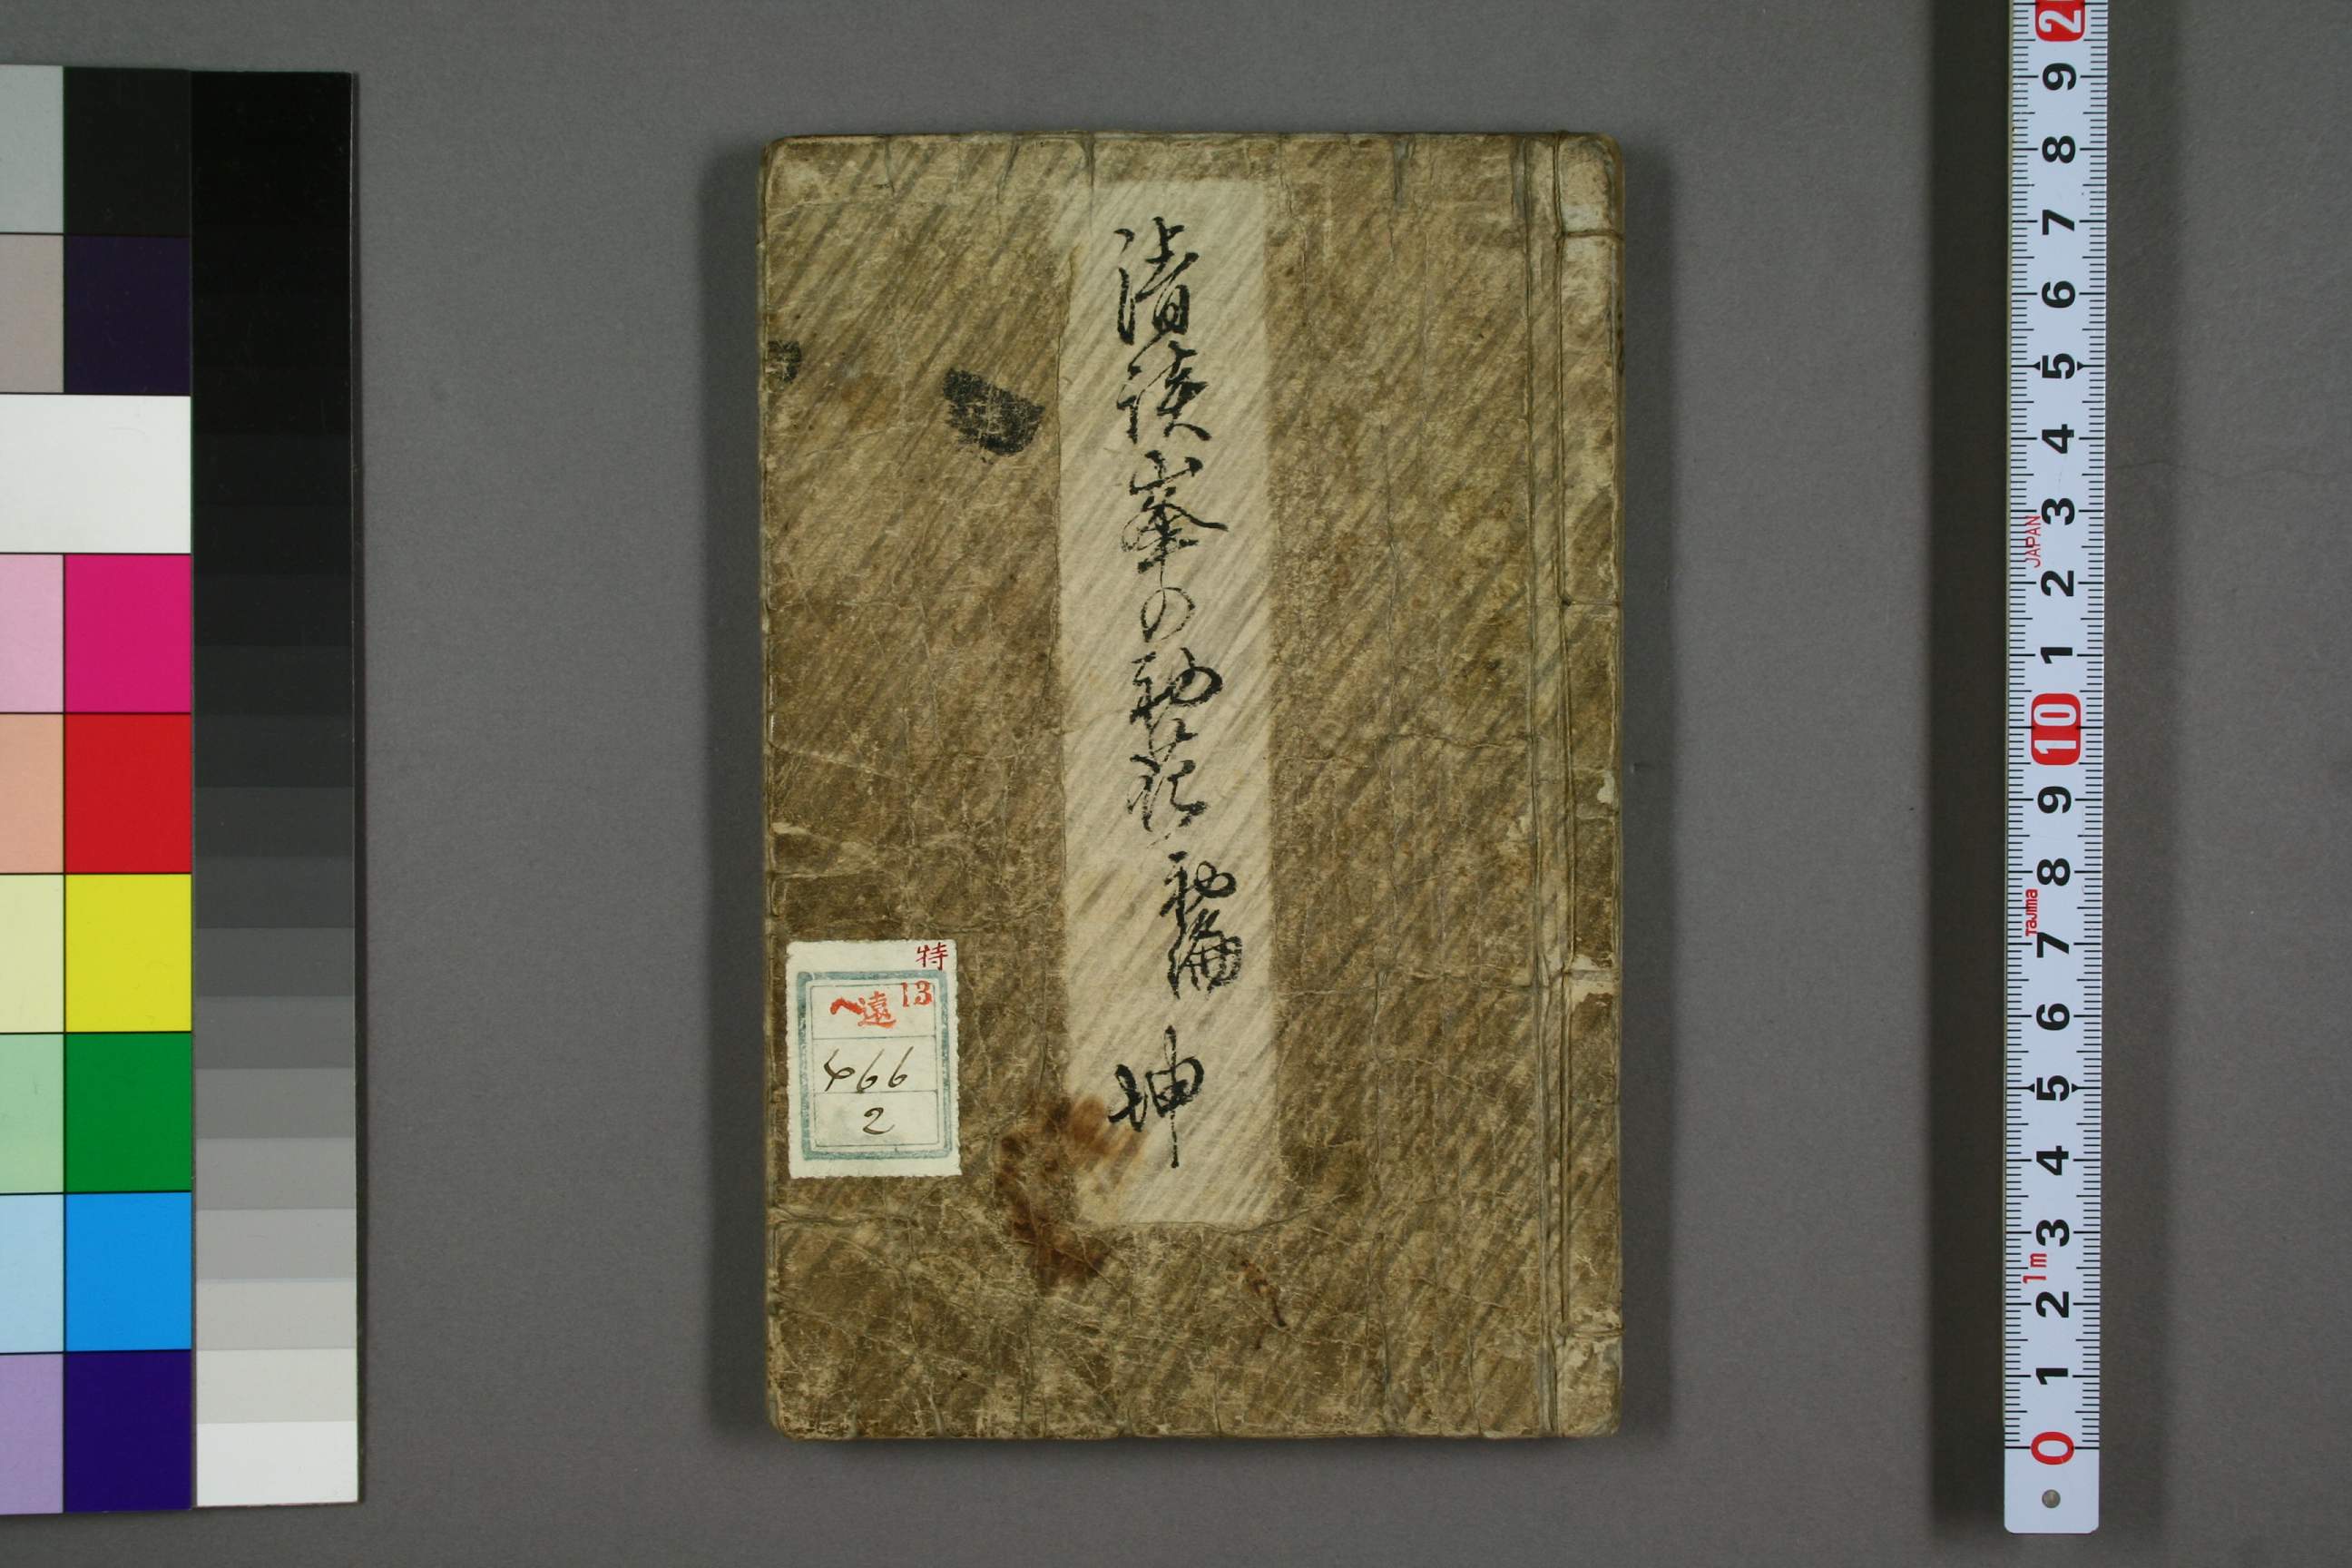 清談峯の初花 初編 坤
特
ヘ遠 13
466
2
2
9
8
7
6
5
4
3
JAPAN
2
1
10
9
8
Tajima
7
6
5
4
3
1m
2
1
0